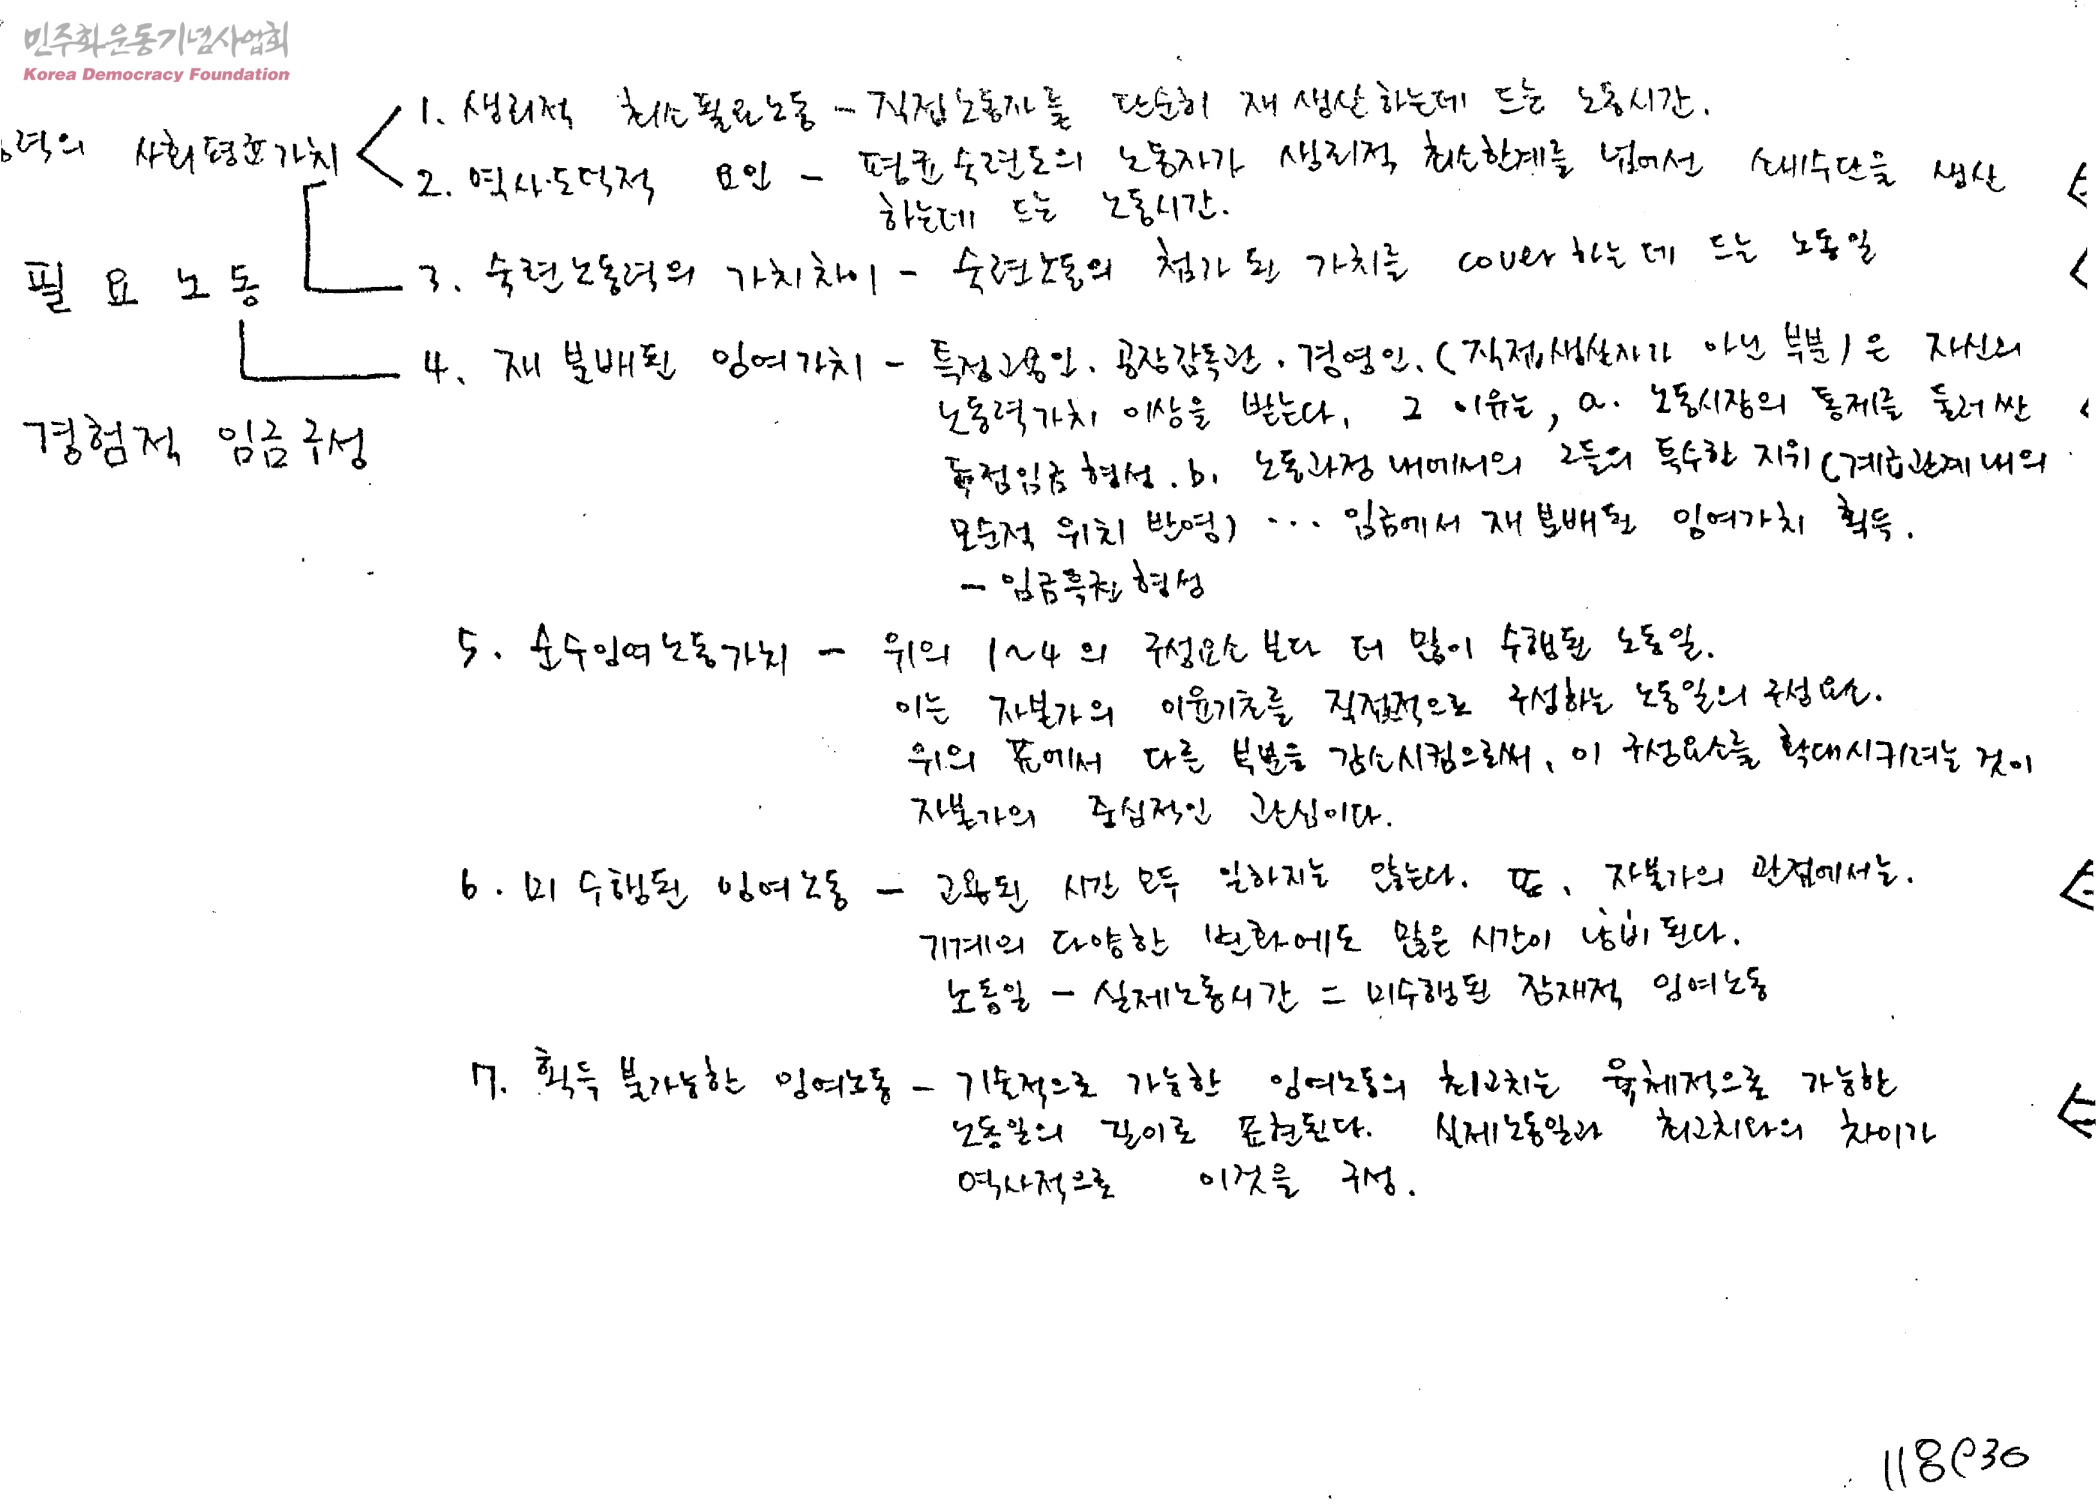 민주화운동기념사업회
Korea Democracy Foundation
1. 생리적 최소필요노동 - 직접노동자를 단순히 재생산하는데 드는 노동시간.
력의 사회평균가치
2. 역사·도덕적 요인 - 평균숙련도의 노동자가 생리적 최소한계를 넘어선 소비수단을 생산
하는데 드는 노동시간.
필요노동
3. 숙련노동력의 가치차이 - 숙련노동의 첨가된 가치를 cover하는데 드는 노동일
4. 재분배된 잉여가치 - 특정고용인. 공장감독관. 경영인. (직접생산자가 아닌 부분)은 자신의
노동력가치 이상을 받는다. 그 이유는, a. 노동시장의 통제를 둘러싼
경험적 임금구성
독점임금형성. b. 노동과정내에서의 그들의 특수한 지위(계급관계내의
모순적 위치 반영) ... 임금에서 재분배된 잉여가치 획득.
- 임금특권형성
5. 순수잉여노동가치 - 위의 1~4의 구성요소보다 더 많이 수행된 노동일.
이는 자본가의 이윤기초를 직접적으로 구성하는 노동일의 구성요소.
위의 표에서 다른 부분을 감소시킴으로써, 이 구성요소를 확대시키려는 것이
자본가의 중심적인 관심이다.
6. 미수행된 잉여노동 - 고용된 시간 모두 일하지는 않는다. 또, 자본가의 관점에서는.
기계의 다양한 변화에도 많은 시간이 낭비된다.
노동일 - 실제노동시간 = 미수행된 잠재적 잉여노동
7. 획득불가능한 잉여노동 - 기술적으로 가능한 잉여노동의 최고치는 육체적으로 가능한
노동일의 길이로 표현된다. 실제노동일과 최고치와의 차이가
역사적으로 이것을 구성.